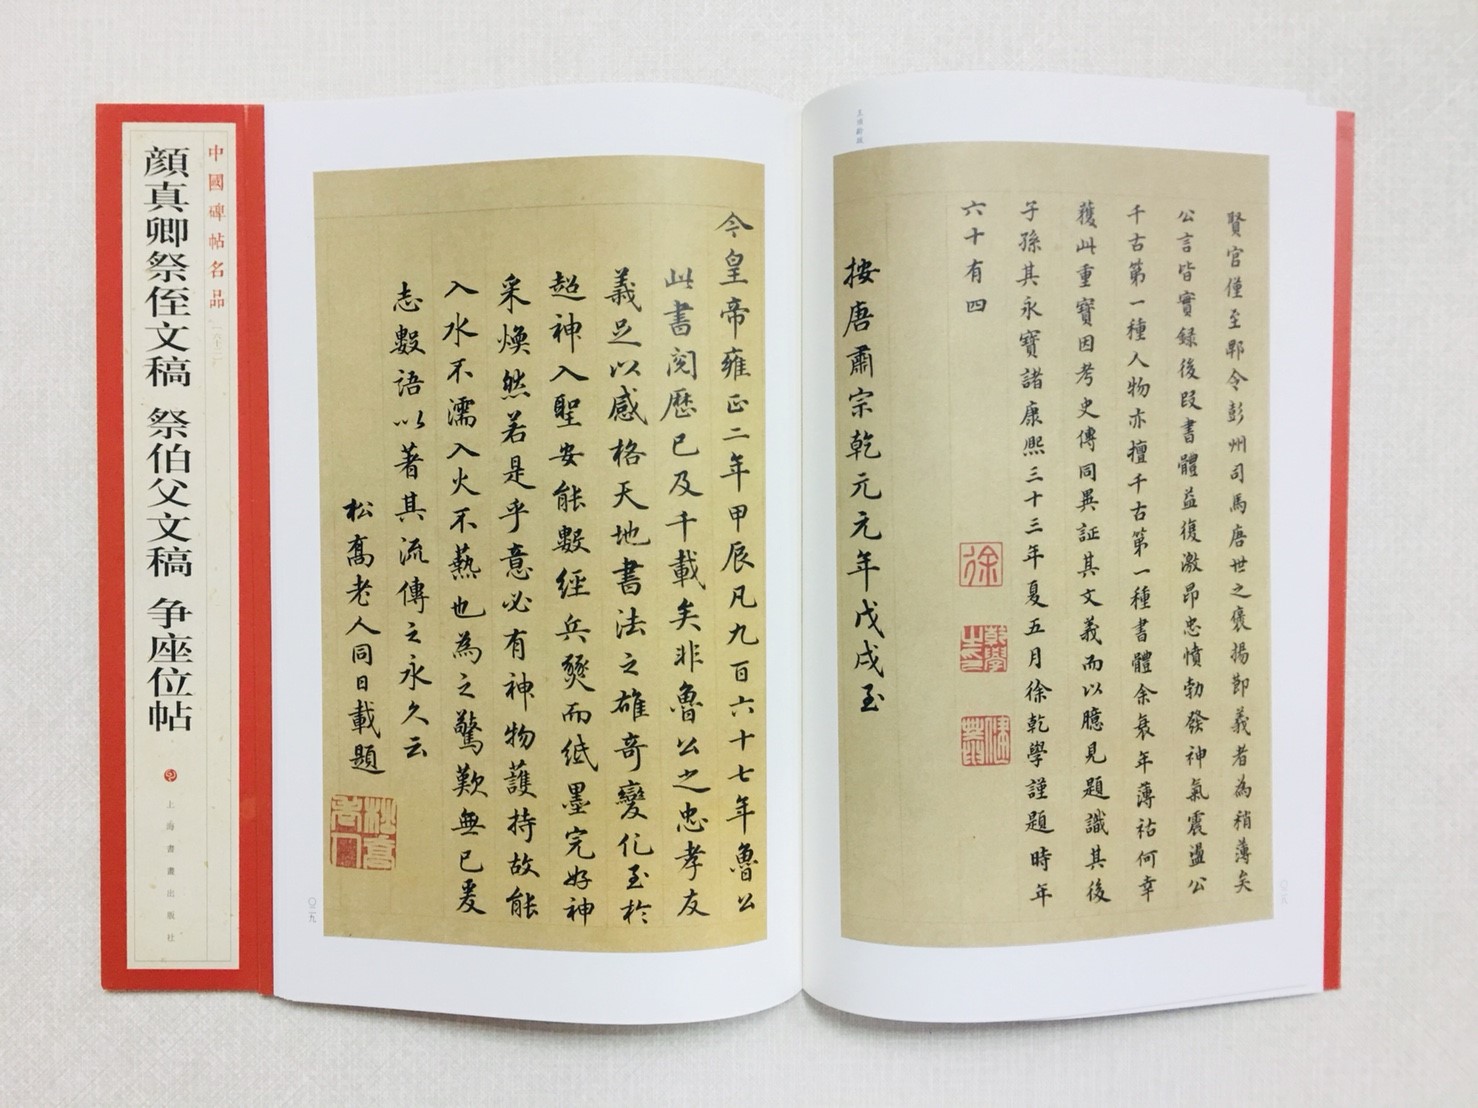 中國碑帖名品
顔真卿祭侄文稿 祭伯父文稿 争座位帖
上海書畫出版社
賢官僅至郫令彭州司馬唐世之襃揚節義者為稍薄矣
公言皆實録後段書體益復激昂忠憤勃發神氣震盪公
千古第一種人物亦擅千古第一種書體余衰年薄祜何幸
獲此重寶因考史傳同異証其文義而以臆見題識其後
子孫其永寶諸康熙三十三年夏五月徐乾學謹題時年
六十有四
徐
乾學之印
健菴
按唐肅宗乾元元年戊戌至
今皇帝雍正二年甲辰凡九百六十七年魯公
此書閲歷已及千載矣非魯公之忠孝友
義足以感格天地書法之雄奇變化至於
超神入聖安能數經兵燹而紙墨完好神
采煥然若是乎意必有神物護持故能
入水不濡入火不爇也為之驚歎無已爰
志數語以著其流傳之永久云
松喬老人同日載題
〇二九